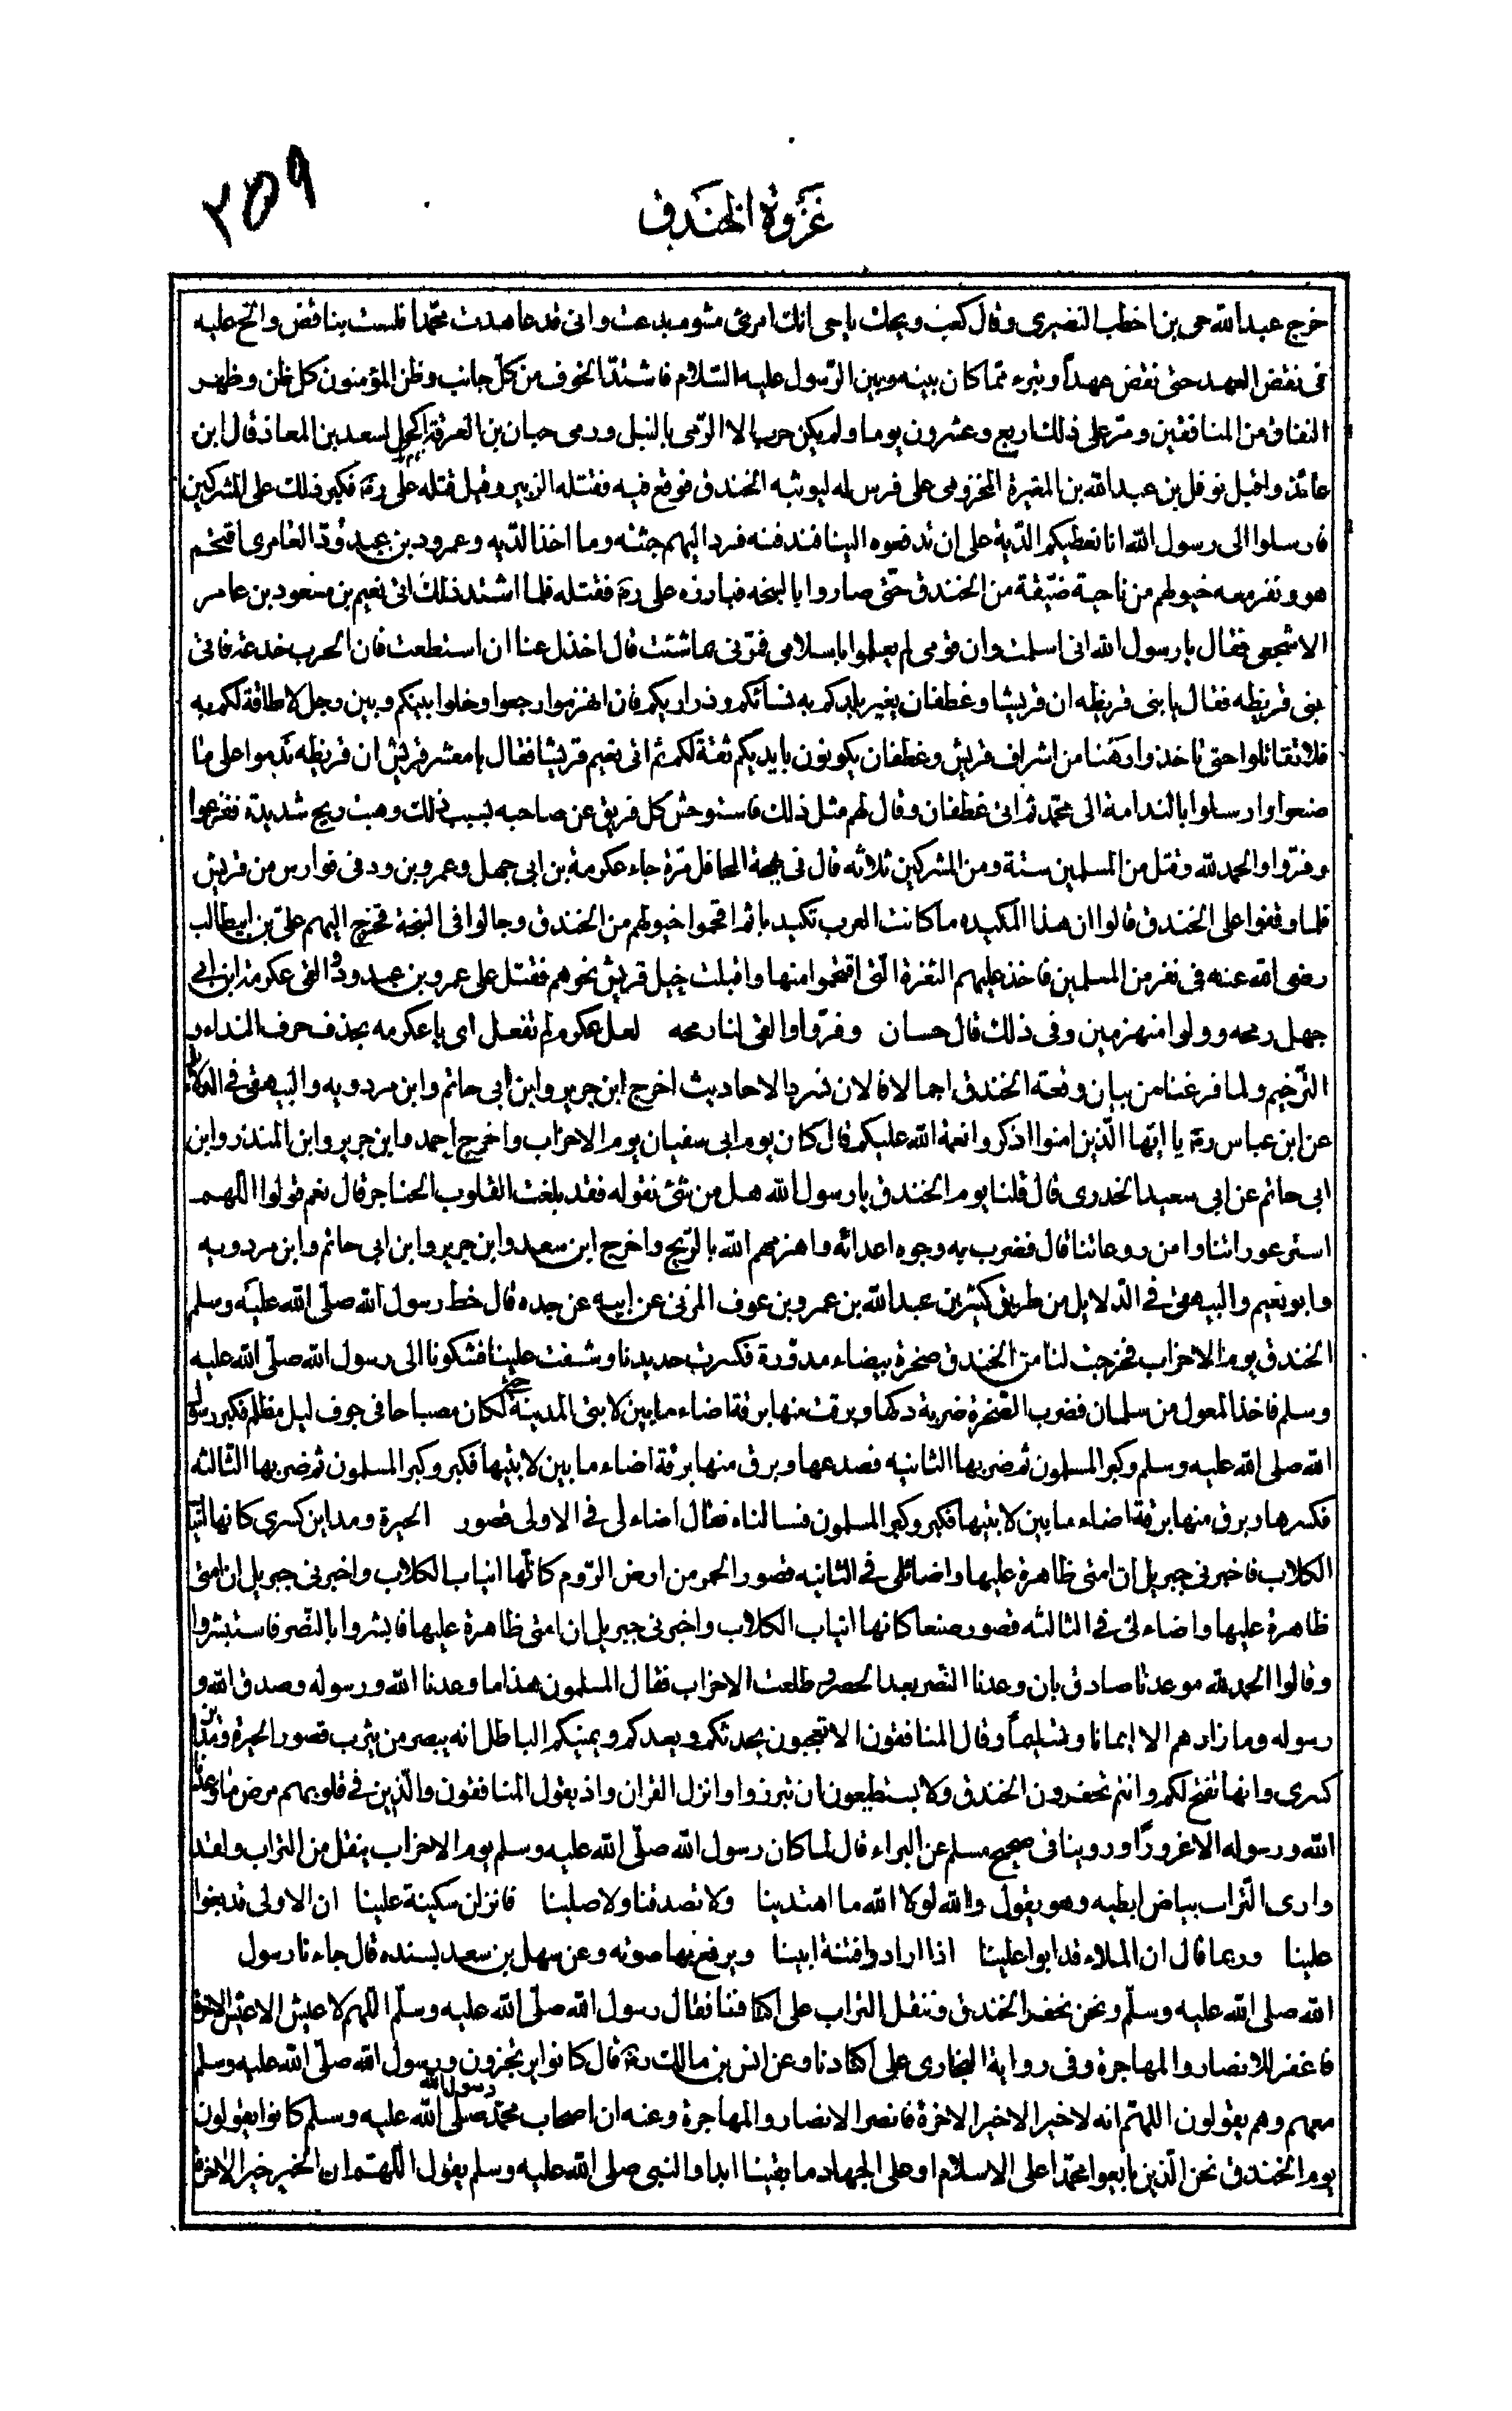 ٢٥٩
غزوة الخندق
خرج عبد الله حى بن اخطب النضيرى وقال كعب ويحك يا حى انك امرئ مشوم بدعت وانى قد عاهدت محمّدا فلست بناقض والح عليه
فى نقض العهد حتى نقض عهداً وبرء مما كان بينه وبين الرّسول عليه السّلام فاشتدّ الخوف من كلّ جانب وظن المؤمنون كل ظن وظهر
النفاق من المنافقين ومرّ على ذلك اربع وعشرون يوما ولم يكن حرب الا الرّمى بالنبل ورمى حبان بن العرقة اكحل لسعد بن المعاذ قال ابن
عائذ واقبل نوفل بن عبد الله بن المغيرة المخزومى على فرس له ليوثبه الخندق فوقع فيه فقتله الزبير وقيل قتله على رضـ فكبر ذلك على المشركين
فارسلوا الى رسول الله انا نعطيكم الدّية على ان تدفعوه الينا فندفنه فرد اليهم جثته وما اخذ الدّيه وعمرو بن عبد وُدّ العامرى اقتحم
هو ونفر معه خيولهم من ناحية ضيّقة من الخندق حتّى صاروا بالسبخه فبارزه على رضـ فقتله فلما اشتد ذلك اتى نعيم بن مسعود بن عامر
الاشجعى فقال يا رسول الله انى اسلمت وان قومى لم يعلموا باسلامى فمرّنى بما شئت قال اخذل عنا ان استطعت فان الحرب خدعة فاتى
بنى قريظه فقال يا بنى قريظه ان قريشا وغطفان بغير بلدكم به نسائكم وذراريكم فان انهزموا رجعوا وخلوا بينكم وبين رجل لا طاقة لكم به
فلا تقاتلوا حتى تاخذوا رهنا من اشراف قريش وغطفان يكونون بايديكم ثقة لكم ثم اتى نعيم قريشا فقال يا معشر قريش ان قريظه ندموا على ما
صنعوا وارسلوا بالندامة الى محمّد ثم اتى غطفان وقال لهم مثل ذلك فاستوحش كل فريق عن صاحبه بسبب ذلك وهبت ريح شديدة ففزعوا
وفرّوا والحمد لله وقتل من المسلمين ستة ومن المشركين ثلاثه قال فى بهجة المحافل مرّة جاء عكرمة بن ابى جهل وعمرو بن ود فى فوارس من قريش
فلما وقفوا على الخندق قالوا ان هذا المكيده ما كانت العرب تكيد بها ثم اقحموا خيولهم من الخندق وجالوا فى السبخة فخرج اليهم علىّ بن ابيطالب
رضى الله عنه فى نفر من المسلمين فاخذ عليهم الثغرة الّتى اقتحموا منها واقبلت خيل قريش نحوهم فقتل على عمرو بن عبد ودّ والقى عكرمة ابن ابى
جهل رمحه وولوا منهزمين وفى ذلك قال حسان وفرّوا والقى لنا رمحه لعل عكرم لم تفعل اى يا عكرمه بحذف حرف النداء و
التّرخيم ولما فرغنا من بيان وقعة الخندق اجمالا فالان نسرد الاحاديث اخرج ابن جرير وابن ابى حاتم وابن مردويه والبيهقى فى الدلائل
عن ابن عباس رضـ يا ايّها الّذين امنوا اذكروا نعمة الله عليكم قال كان يوم ابى سفيان يوم الاحزاب واخرج احمد وابن جرير وابن المنذر وابن
ابى حاتم عن ابى سعيد الخدرى قال قلنا يوم الخندق يا رسول الله هل من شئ نقوله فقد بلغت القلوب الحناجر قال نعم قولوا اللهمـ
استر عوراتنا وامن روعاتنا قال فضرب به وجوه اعدائه واهزمهم الله بالرّيح واخرج ابن سعد وابن جرير وابن ابى حاتم وابن مردويه
وابو نعيم والبيهقى فى الدّلايل من طريق كثير بن عبد الله بن عمرو بن عوف المزنى عن ابيه عن جده قال خط رسول الله صلّى الله عليه وسلم
الخندق يوم الاحزاب فخرجت لنا من الخندق صخرة بيضاء مدوّرة فكسرت حديدنا وشقت علينا فشكونا الى رسول الله صلّى الله عليه
وسلم فاخذ المعول من سلمان فضرب الصّخرة ضربة دكها وبرقت منها برقة اضاء ما بين لابتى المدينة حتى لكان مصباحا فى جوف ليل مظلم فكبر رسول
الله صلى الله عليه وسلم وكبر المسلمون ثم ضربها الثانيه فصدعها وبرق منها برقة اضاء ما بين لابتيها فكبر وكبر المسلمون ثم ضربها الثّالثه
فكسرها وبرق منها برقة اضاء ما بين لابتيها فكبر وكبر المسلمون فسالناه فقال اضاء لى فى الاولى قصور الحيرة ومداين كسرى كانها انياب
الكلاب فاخبرنى جبريل ان امتى ظاهرة عليها واضائلى فى الثانيه قصور الحمر من ارض الرّوم كانّها انياب الكلاب واخبرنى جبريل ان امتى
ظاهرة عليها واضاء لى فى الثالثه قصور صنعا كانها انياب الكلاب واخبرنى جبريل ان امتى ظاهرة عليها فابشروا بالنّصر فاستبشروا
وقالوا الحمد لله موعدنا صادق بان وعدنا النّصر بعد الحصر وطلعت الاحزاب فقال المسلمون هذا ما وعدنا الله ورسوله وصدق الله و
رسوله وما زادهم الا ايمانا وتسليماً وقال المنافقون الا تعجبون يحدثكم ويعدكم ويمنيكم الباطل انه يبصر من يثرب قصور الحيرة ومداين
كسرى وانها تفتح لكم وانتم تحفرون الخندق ولا يستطيعون ان تبرزوا وانزل القران واذ يقول المنافقون والّذين فى قلوبهم مرض ما وعدنا
الله ورسوله الا غروراً وروينا فى صحيح مسلم عن البراء قال لما كان رسول الله صلّى الله عليه وسلم يوم الاحزاب ينقل من التراب ولقد
وارى التّراب بياض ابطيه وهو يقول والله لولا الله ما اهتدينا ولا تصدقنا ولا صلينا فانزلن سكينة علينا ان الاولى قد بغوا
علينا وربما قال ان الملاء قد ابوا علينا اذا ارادوا فتنة ابينا ويرفع بها صوته وعن سهل بن سعد بسنده قال جاءنا رسول
الله صلى الله عليه وسلّم ونحن نحفر الخندق وننقل التراب على اكتافنا فقال رسول الله صلّى الله عليه وسلّم اللهم لا عيش الا عيش الاخرة
فاغفر للانصار والمهاجرة وفى رواية البخارى على اكتادنا وعن انس بن مالك رضـ قال كانوا يرتجزون ورسول الله صلّى الله عليه وسلم
معهم وهم يقولون اللهمّ انه لا خير الا خير الاخرة فانصر الانصار والمهاجرة وعنه ان اصحاب محمّد رسول الله صلى الله عليه وسلم كانوا يقولون
يوم الخندق نحن الّذين بايعوا محمّدا على الاسلام او على الجهاد ما بقينا ابدا والنبى صلى الله عليه وسلم يقول اللهتم ان الخير خير الاخرة